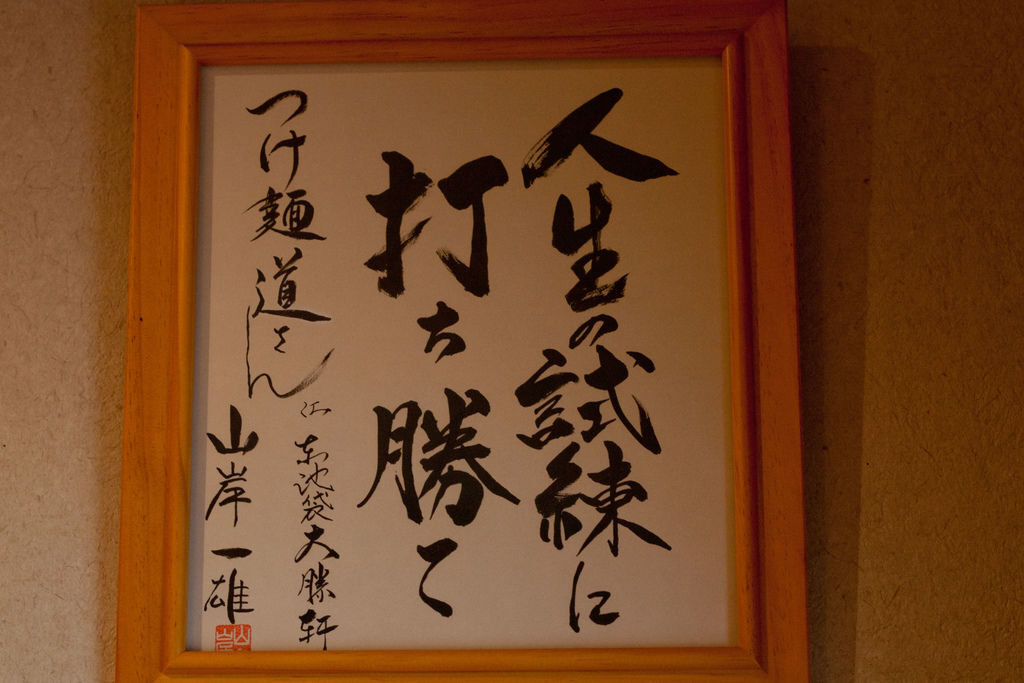 人生の試練に
打ち勝て
つけ麺道さん江
東池袋大勝軒
山岸一雄